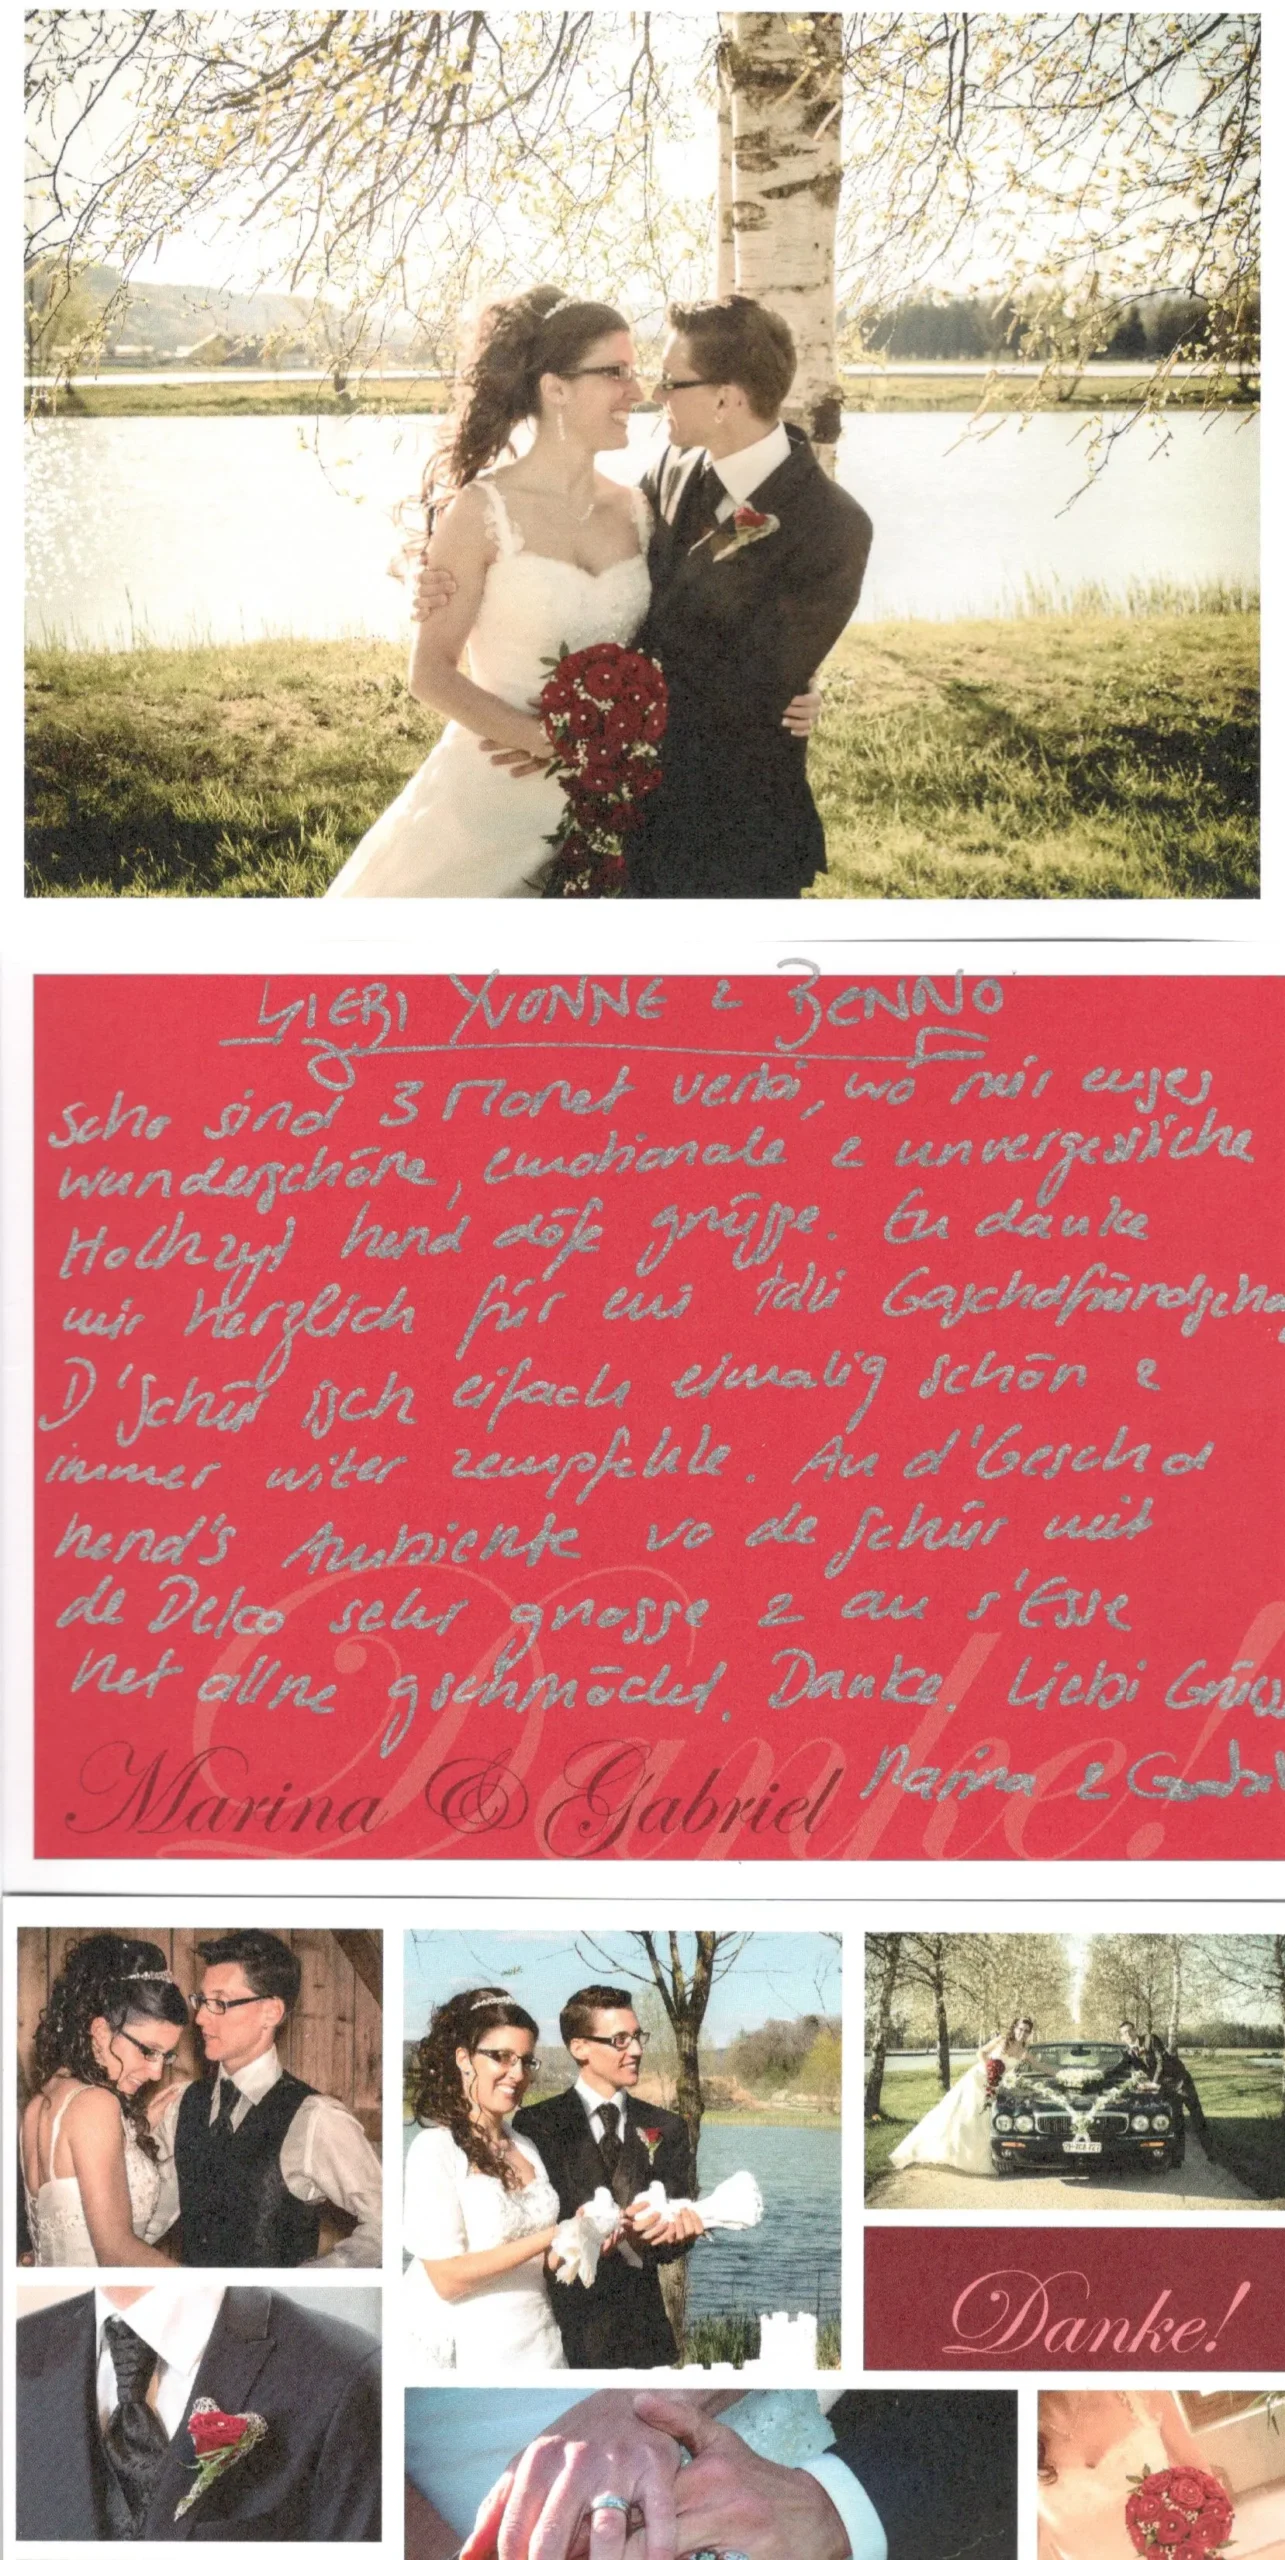 Liebi Yvonne & Benno
Scho sind 3 Monet verbi, wo mir euses
wunderschöne, emotionale & unvergessliche
Hochzyt hend döfe gnüsse. Eu danke
mir herzlich für eui tolli
D'Schür isch eifach eimalig schön &
immer witer zempfehle. Au d'Gescht
hend's Ambiente vo de Schür mit
de Deko sehr gnosse & au s'Esse
het allne gschmöckt. Danke. Liebi Grüss
Marina & Gabriel
Danke!
Marina & Gabriel
Danke!